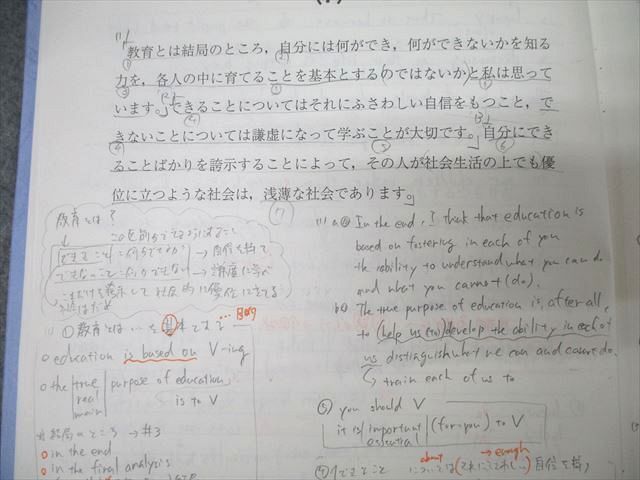 教育とは結局のところ，自分には何ができ，何ができないかを知る
力を，各人の中に育てることを基本とするのではないかと私は思って
います。できることについてはそれにふさわしい自信をもつこと，で
きないことについては謙虚になって学ぶことが大切です。自分にでき
ることばかりを誇示することによって，その人が社会生活の上でも優
位に立つような社会は，浅薄な社会であります。
教育とは？
できること
できないこと
→ 謙虚に学ぶ
① 教育とは…
目的
education is based on V-ing
the true purpose of education
real
main
is to V
結局のところ → #3
in the end
in the final analysis
⑦
(1) a In the end, I think that education is
based on fostering in each of you
the ability to understand what you can do
and what you cannot (do).
b The true purpose of education is, after all,
to (help us (to)) develop the ability in each of
us distinguish what we can and cannot do.
train each of us to
⑤ you should V
it is important (for you) to V
essential
about
→ enough
については
自信を持つ